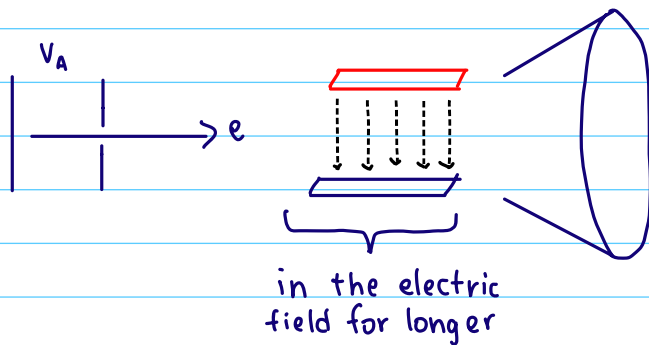 V_A
e
in the electric
field for longer